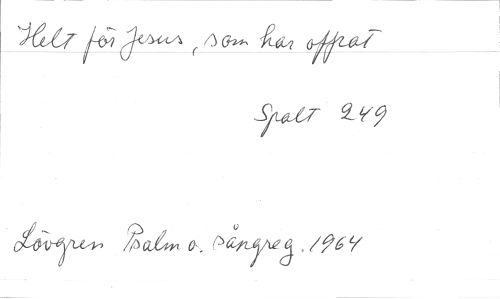 Helt för Jesus, som har offrat
Spalt 249
Lövgren Psalm o. sångreg. 1964